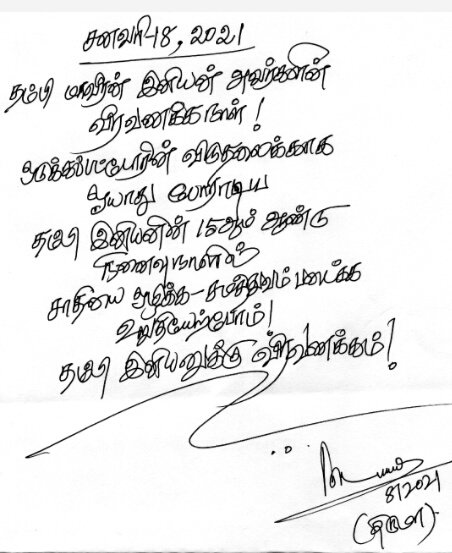 சனவரி-18, 2021
தம்பி மாவீரன் இனியன் அவர்களின்
வீரவணக்க நாள்!
ஒடுக்கப்பட்டோரின் விடுதலைக்காக
ஓயாது போராடிய
தம்பி இனியனின் 15ஆம் ஆண்டு
நினைவுநாளில்
சாதியை அழிக்க - சமத்துவம் படைக்க
உறுதியேற்போம்!
தம்பி இனியனுக்கு வீரவணக்கம்!
8/2021
(திருமா)